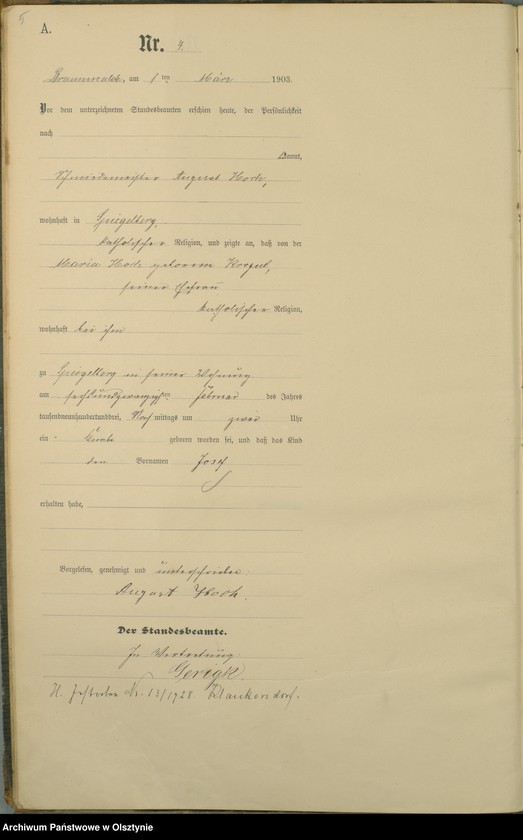 5
A.
Nr. 9.
Braunswalde, am 1ten März 1903.
Vor dem unterzeichneten Standesbeamten erschien heute, der Persönlichkeit
nach
kannt,
Schmiedemeister August Hoch,
wohnhaft in Spiegelberg,
katholischer Religion, und zeigte an, daß von der
Maria Hoch geborenen
seiner Ehefrau
katholischer Religion,
wohnhaft bei ihm
zu Spiegelberg in seiner Wohnung
am sechsundzwanzigsten Februar des Jahres
tausendneunhundertunddrei, Nachmittags um zwei Uhr
ein Knabe geboren worden sei, und daß das Kind
den Vornamen Josef
erhalten habe,
Vorgelesen, genehmigt und unterschrieben:
August Hoch.
Der Standesbeamte.
In Vertretung
Gerigk
Nr. 13/1928
Archiwum Państwowe w Olsztynie